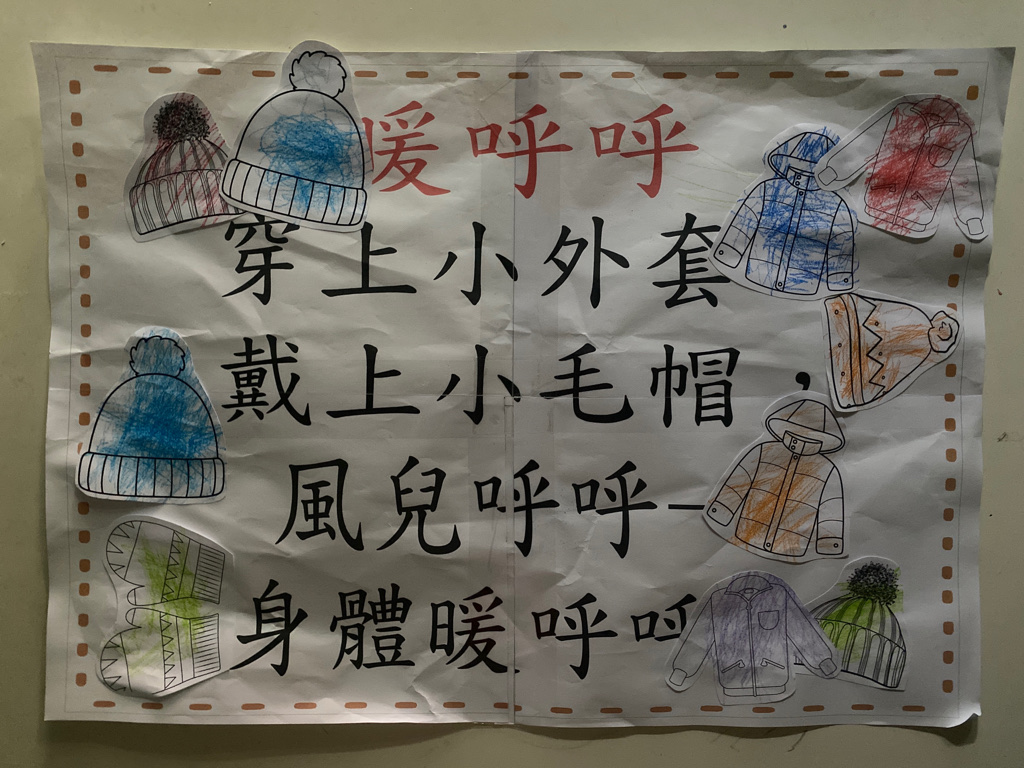 暖呼呼
穿上小外套
戴上小毛帽，
風兒呼呼一
身體暖呼呼